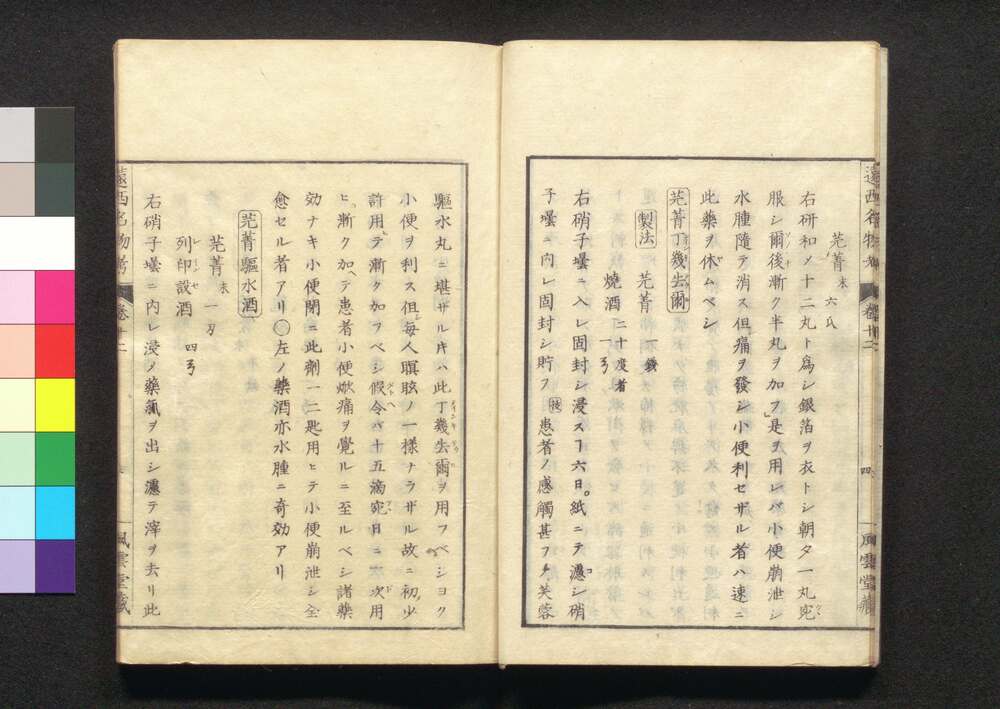 遠西名物考 卷十二 四 風雲堂藏
芫菁 末 六氏
右研和メ十二丸ト爲シ銀箔ヲ衣トシ朝夕一丸宛
服シ爾後漸ク半丸ヲ加フ是ヲ用レバ小便崩泄シ
水腫隨テ消ス但痛ヲ發シ小便利セザル者ハ速ニ
此藥ヲ休ムベシ
芫菁丁幾去爾
製法 芫菁 二錢
燒酒 二十度者 一弓
右硝子壜ニ入レ固封シ浸スヿ六日紙ニテ濾シ硝
子壜ニ内レ固封シ貯フ 患者ノ感觸甚フ乄芙蓉
驅水丸ニ堪ザル片ハ此丁幾去爾ヲ用フベシヨク
小便ヲ利ス但毎人瞑眩ノ一樣ナラザル故ニ初少
許用テ漸ク加フベシ假令バ十五滴宛日ニ二次用
ヒ漸ク加テ患者小便焮痛ヲ覺ルニ至ルベシ諸藥
効ナキ小便閉ニ此劑一二匙用ヒテ小便崩泄シ全
愈セル者アリ〇左ノ藥酒亦水腫ニ奇効アリ
芫菁驅水酒
芫菁 末 一刃
列印設酒 四弓
右硝子壜ニ内レ浸メ藥氣ヲ出シ濾テ滓ヲ去リ此
遠西名物考 卷十二 風雲堂藏